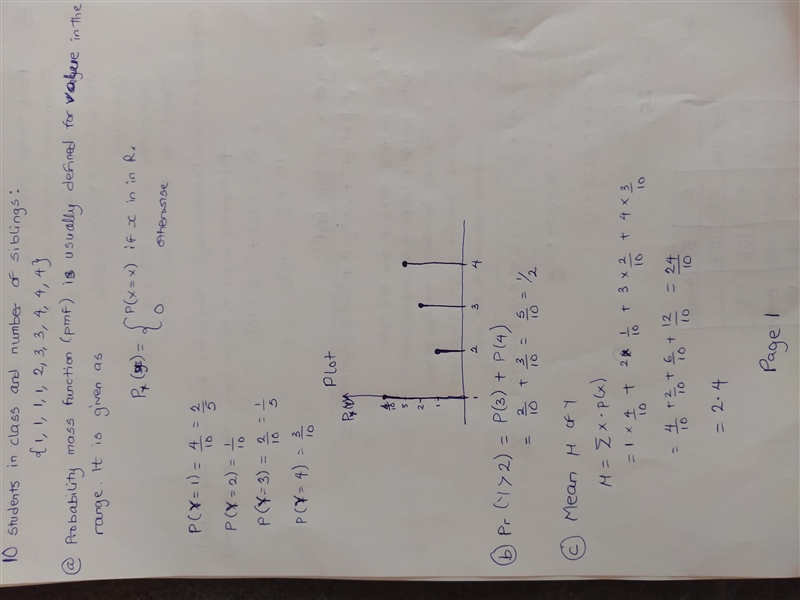 10 students in class and number of siblings:
{1, 1, 1, 1, 2, 3, 3, 4, 4, 4}
(a) Probability mass function (pmf) is usually defined for value in the
range. It is given as
Px(x) = { P(X=x) if x in in Rx
0 otherwise
P(Y=1) = 4/10 = 2/5
P(Y=2) = 1/10
P(Y=3) = 2/10 = 1/5
P(Y=4) = 3/10
Plot
4/10
3
2
1
1 2 3 4
(b) Pr(Y>2) = P(3) + P(4)
= 2/10 + 3/10 = 5/10 = 1/2
(c) Mean M of Y
M = Σ x·p(x)
= 1 × 4/10 + 2 × 1/10 + 3 × 2/10 + 4 × 3/10
= 4/10 + 2/10 + 6/10 + 12/10 = 24/10
= 2.4
Page 1